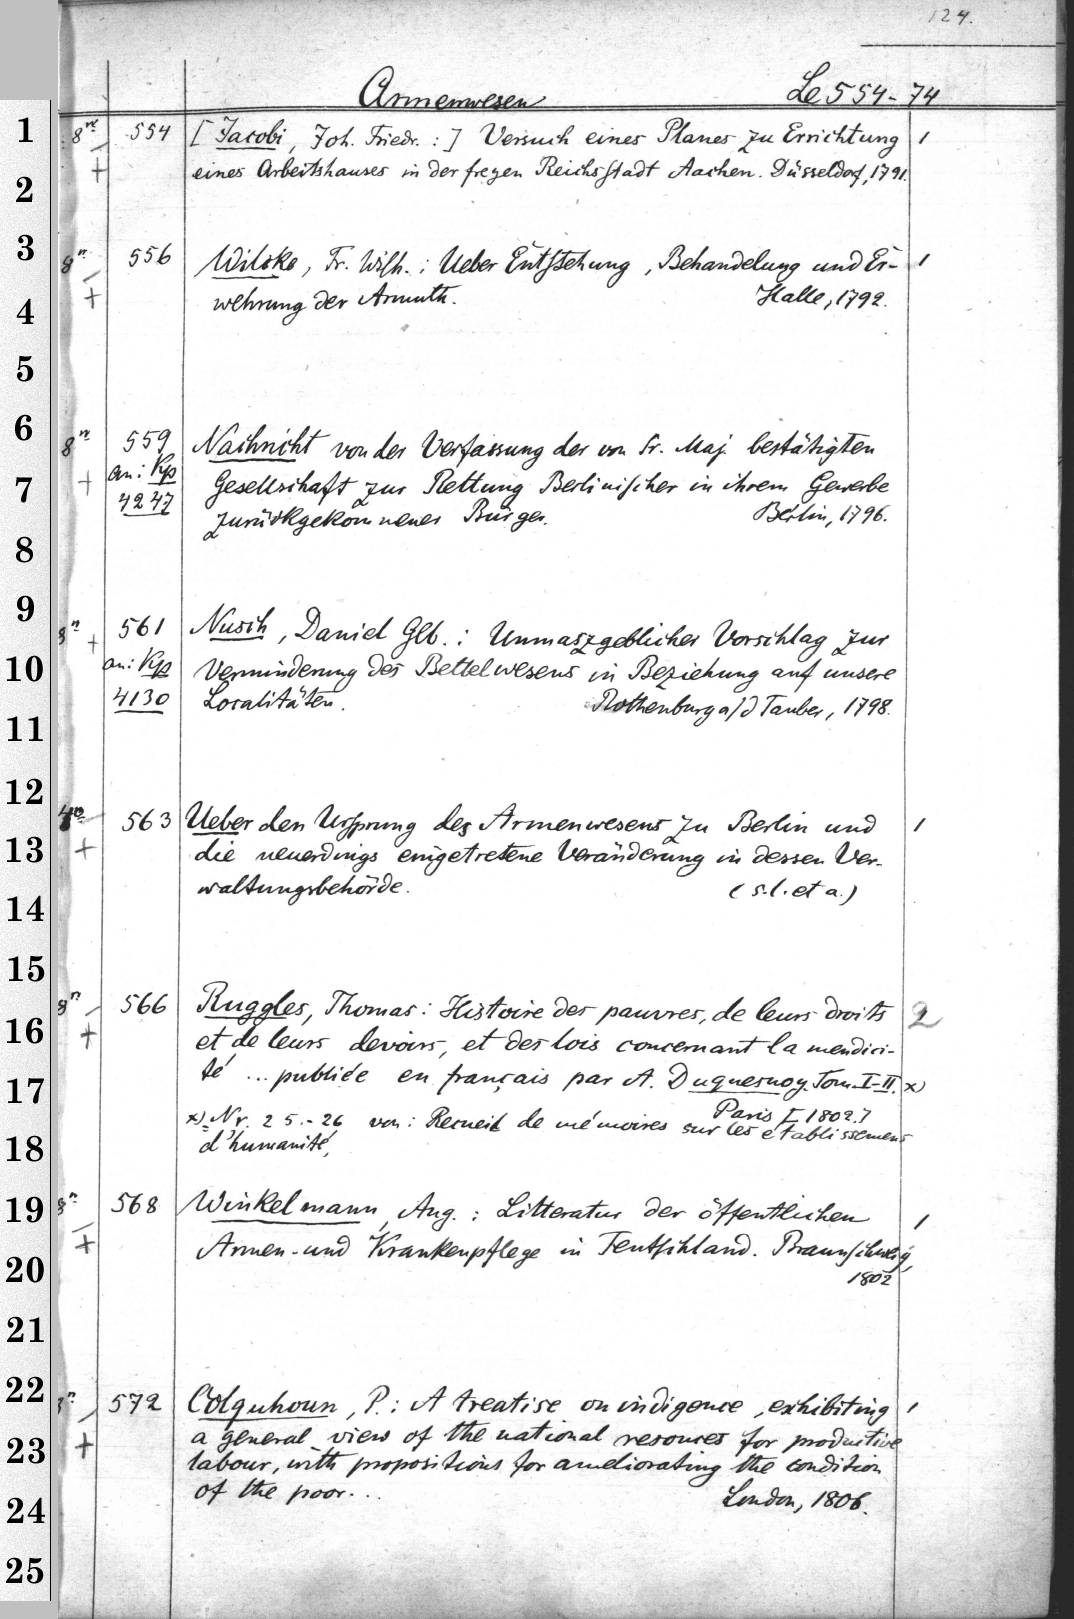 124.
Armenwesen Le 554-74
8° 554 [Jacobi, Joh. Friedr.:] Versuch eines Planes zu Errichtung 1
+ eines Arbeitshauses in der freyen Reichsstadt Aachen. Düsseldorf, 1791.
8° 556 Wilcke, Fr. Wilh.: Ueber Entstehung, Behandelung und Er- 1
+ wehrung der Armuth. Halle, 1792.
8° 559 Nachricht von der Verfassung der von Sr. Maj. bestätigten
+ an: Kp Gesellschaft zur Rettung Berlinischer in ihrem Gewerbe
4247 zurückgekommener Bürger. Berlin, 1796.
8° + 561 Nusch, Daniel Glb.: Unmaszgeblicher Vorschlag zur
an: Kp Verminderung des Bettelwesens in Beziehung auf unsere
4130 Localitäten. Rothenburg a/d Tauber, 1798.
4° 563 Ueber den Ursprung des Armenwesens zu Berlin und 1
+ die neuerdings eingetretene Veränderung in dessen Ver-
waltungsbehörde. (s.l. et a.)
8° 566 Ruggles, Thomas: Histoire des pauvres, de leurs droits 2
+ et de leurs devoirs, et des lois concernant la mendici-
té ... publiée en français par A. Duquesnoy. Tom. I-II. x)
Paris [1802.]
x) Nr. 25.-26 von: Recueil de mémoires sur les établissemens
d'humanité,
8° 568 Winkelmann, Aug.: Litteratur der öffentlichen 1
+ Armen- und Krankenpflege in Teutschland. Braunschweig,
1802
8° 572 Colquhoun, P.: A treatise on indigence, exhibiting 1
+ a general view of the national resources for productive
labour, with propositions for ameliorating the condition
of the poor... London, 1806.
1
2
3
4
5
6
7
8
9
10
11
12
13
14
15
16
17
18
19
20
21
22
23
24
25